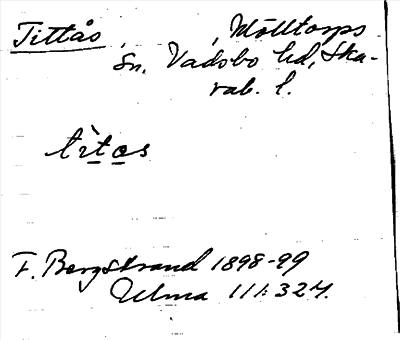 Tittås, , Mölltorps
Sn, Vadsbo hd, Ska-
rab. l.
tìtas
F. Bergstrand 1898-99
Ulma 111:327.